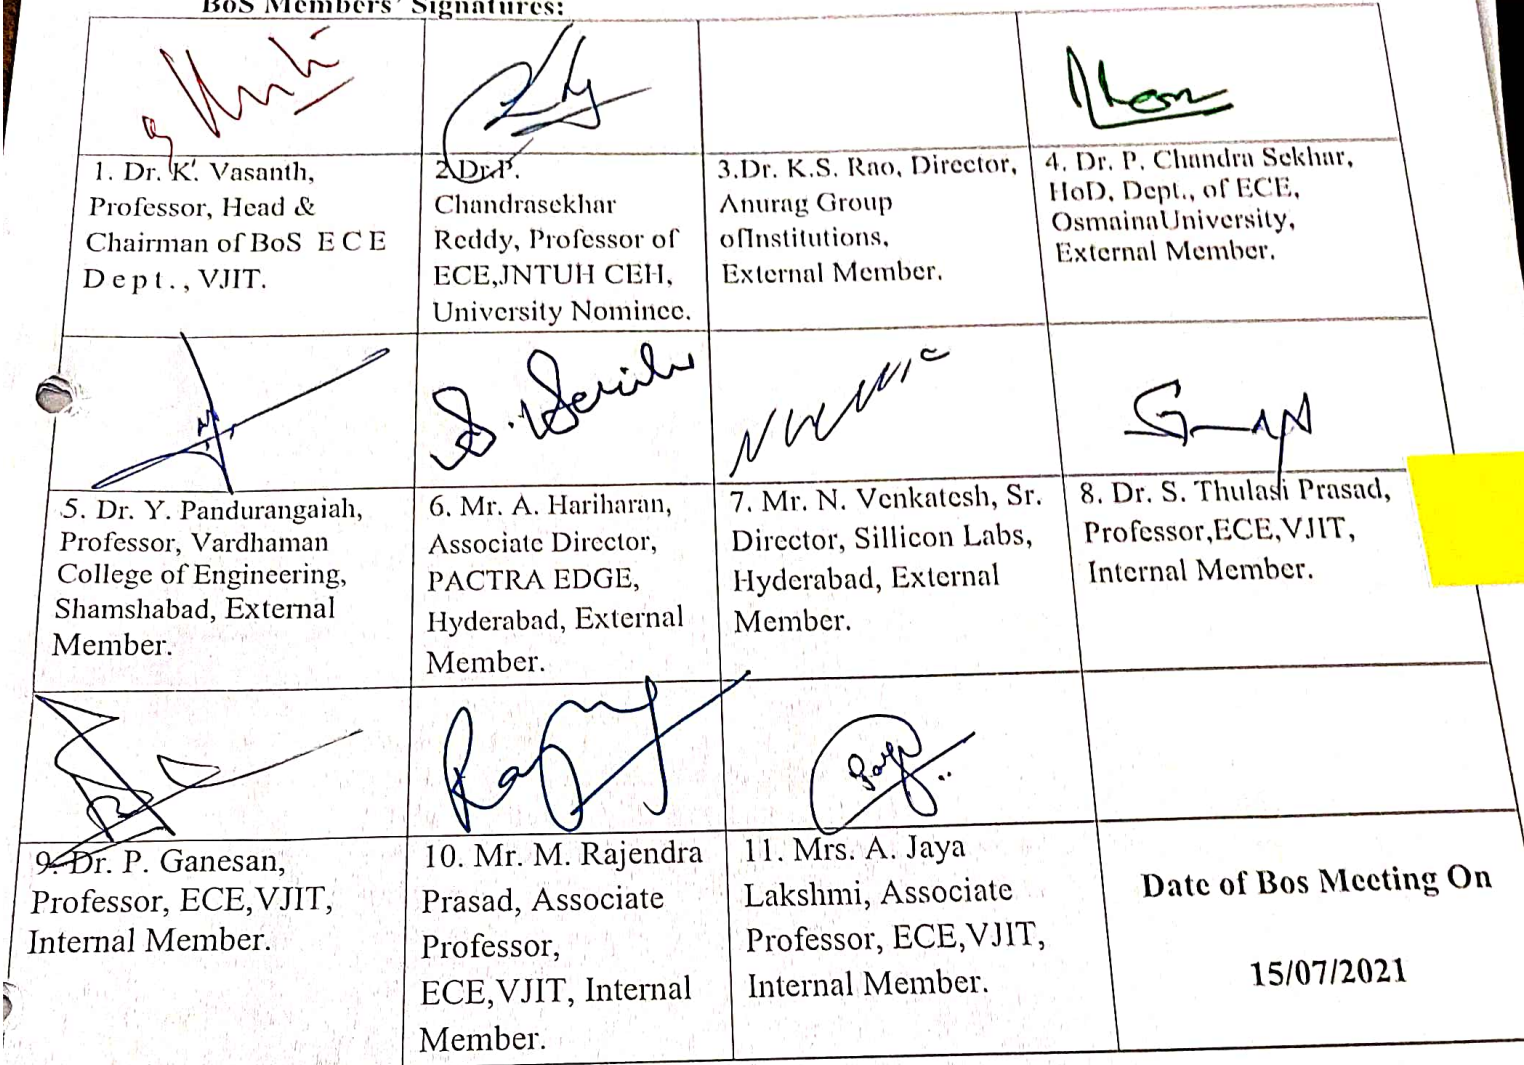 BoS Members' Signatures:
1. Dr. K. Vasanth,
Professor, Head &
Chairman of BoS E C E
D e p t . , VJIT.
2.Dr.P.
Chandrasekhar
Reddy, Professor of
ECE,JNTUH CEH,
University Nominee.
3.Dr. K.S. Rao, Director,
Anurag Group
ofInstitutions,
External Member.
4. Dr. P. Chandra Sekhar,
HoD, Dept., of ECE,
OsmainaUniversity,
External Member.
5. Dr. Y. Pandurangaiah,
Professor, Vardhaman
College of Engineering,
Shamshabad, External
Member.
6. Mr. A. Hariharan,
Associate Director,
PACTRA EDGE,
Hyderabad, External
Member.
7. Mr. N. Venkatesh, Sr.
Director, Sillicon Labs,
Hyderabad, External
Member.
8. Dr. S. Thulasi Prasad,
Professor,ECE,VJIT,
Internal Member.
9. Dr. P. Ganesan,
Professor, ECE,VJIT,
Internal Member.
10. Mr. M. Rajendra
Prasad, Associate
Professor,
ECE,VJIT, Internal
Member.
11. Mrs. A. Jaya
Lakshmi, Associate
Professor, ECE,VJIT,
Internal Member.
Date of Bos Meeting On
15/07/2021